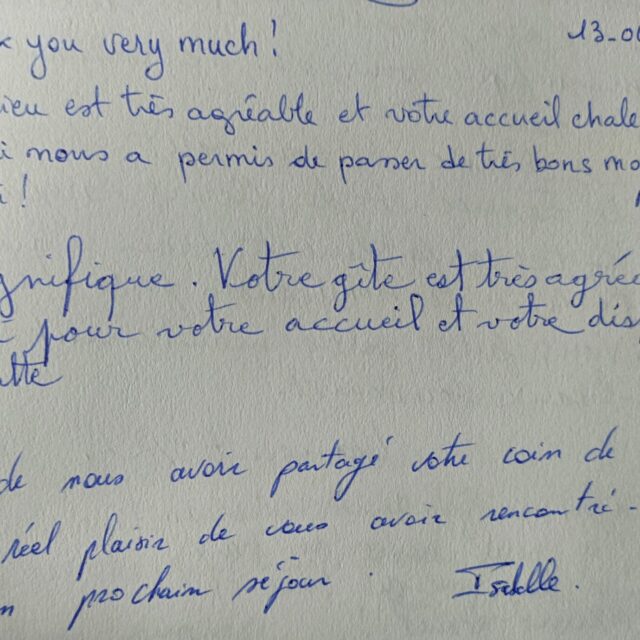 you very much! 13-0
ieu est très agréable et votre accueil chale
i nous a permis de passer de très bons mo
i!
gnifique. Votre gîte est très agré
pour votre accueil et votre dis
tte
de nous avoir partagé votre coin de
réel plaisir de vous avoir rencontré-
n prochain séjour. Isabelle.